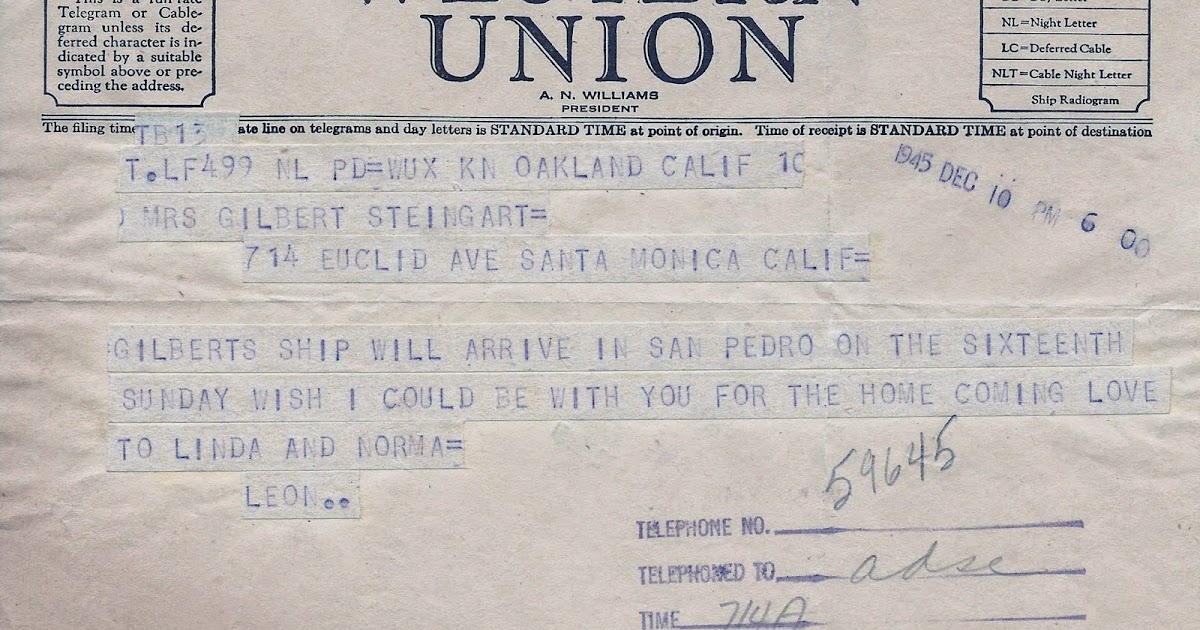 This is a full-rate
Telegram or Cable-
gram unless its de-
ferred character is in-
dicated by a suitable
symbol above or pre-
ceding the address.
WESTERN
UNION
A. N. WILLIAMS
PRESIDENT
NL=Night Letter
LC=Deferred Cable
NLT=Cable Night Letter
Ship Radiogram
The filing time ate line on telegrams and day letters is STANDARD TIME at point of origin. Time of receipt is STANDARD TIME at point of destination
TB13
T.LF499 NL PD=WUX KN OAKLAND CALIF 10
1945 DEC 10 PM 6 00
MRS GILBERT STEINGART=
714 EUCLID AVE SANTA MONICA CALIF=
GILBERTS SHIP WILL ARRIVE IN SAN PEDRO ON THE SIXTEENTH
SUNDAY WISH I COULD BE WITH YOU FOR THE HOME COMING LOVE
TO LINDA AND NORMA=
LEON..
59645
TELEPHONE NO.
TELEPHONED TO
TIME 714A